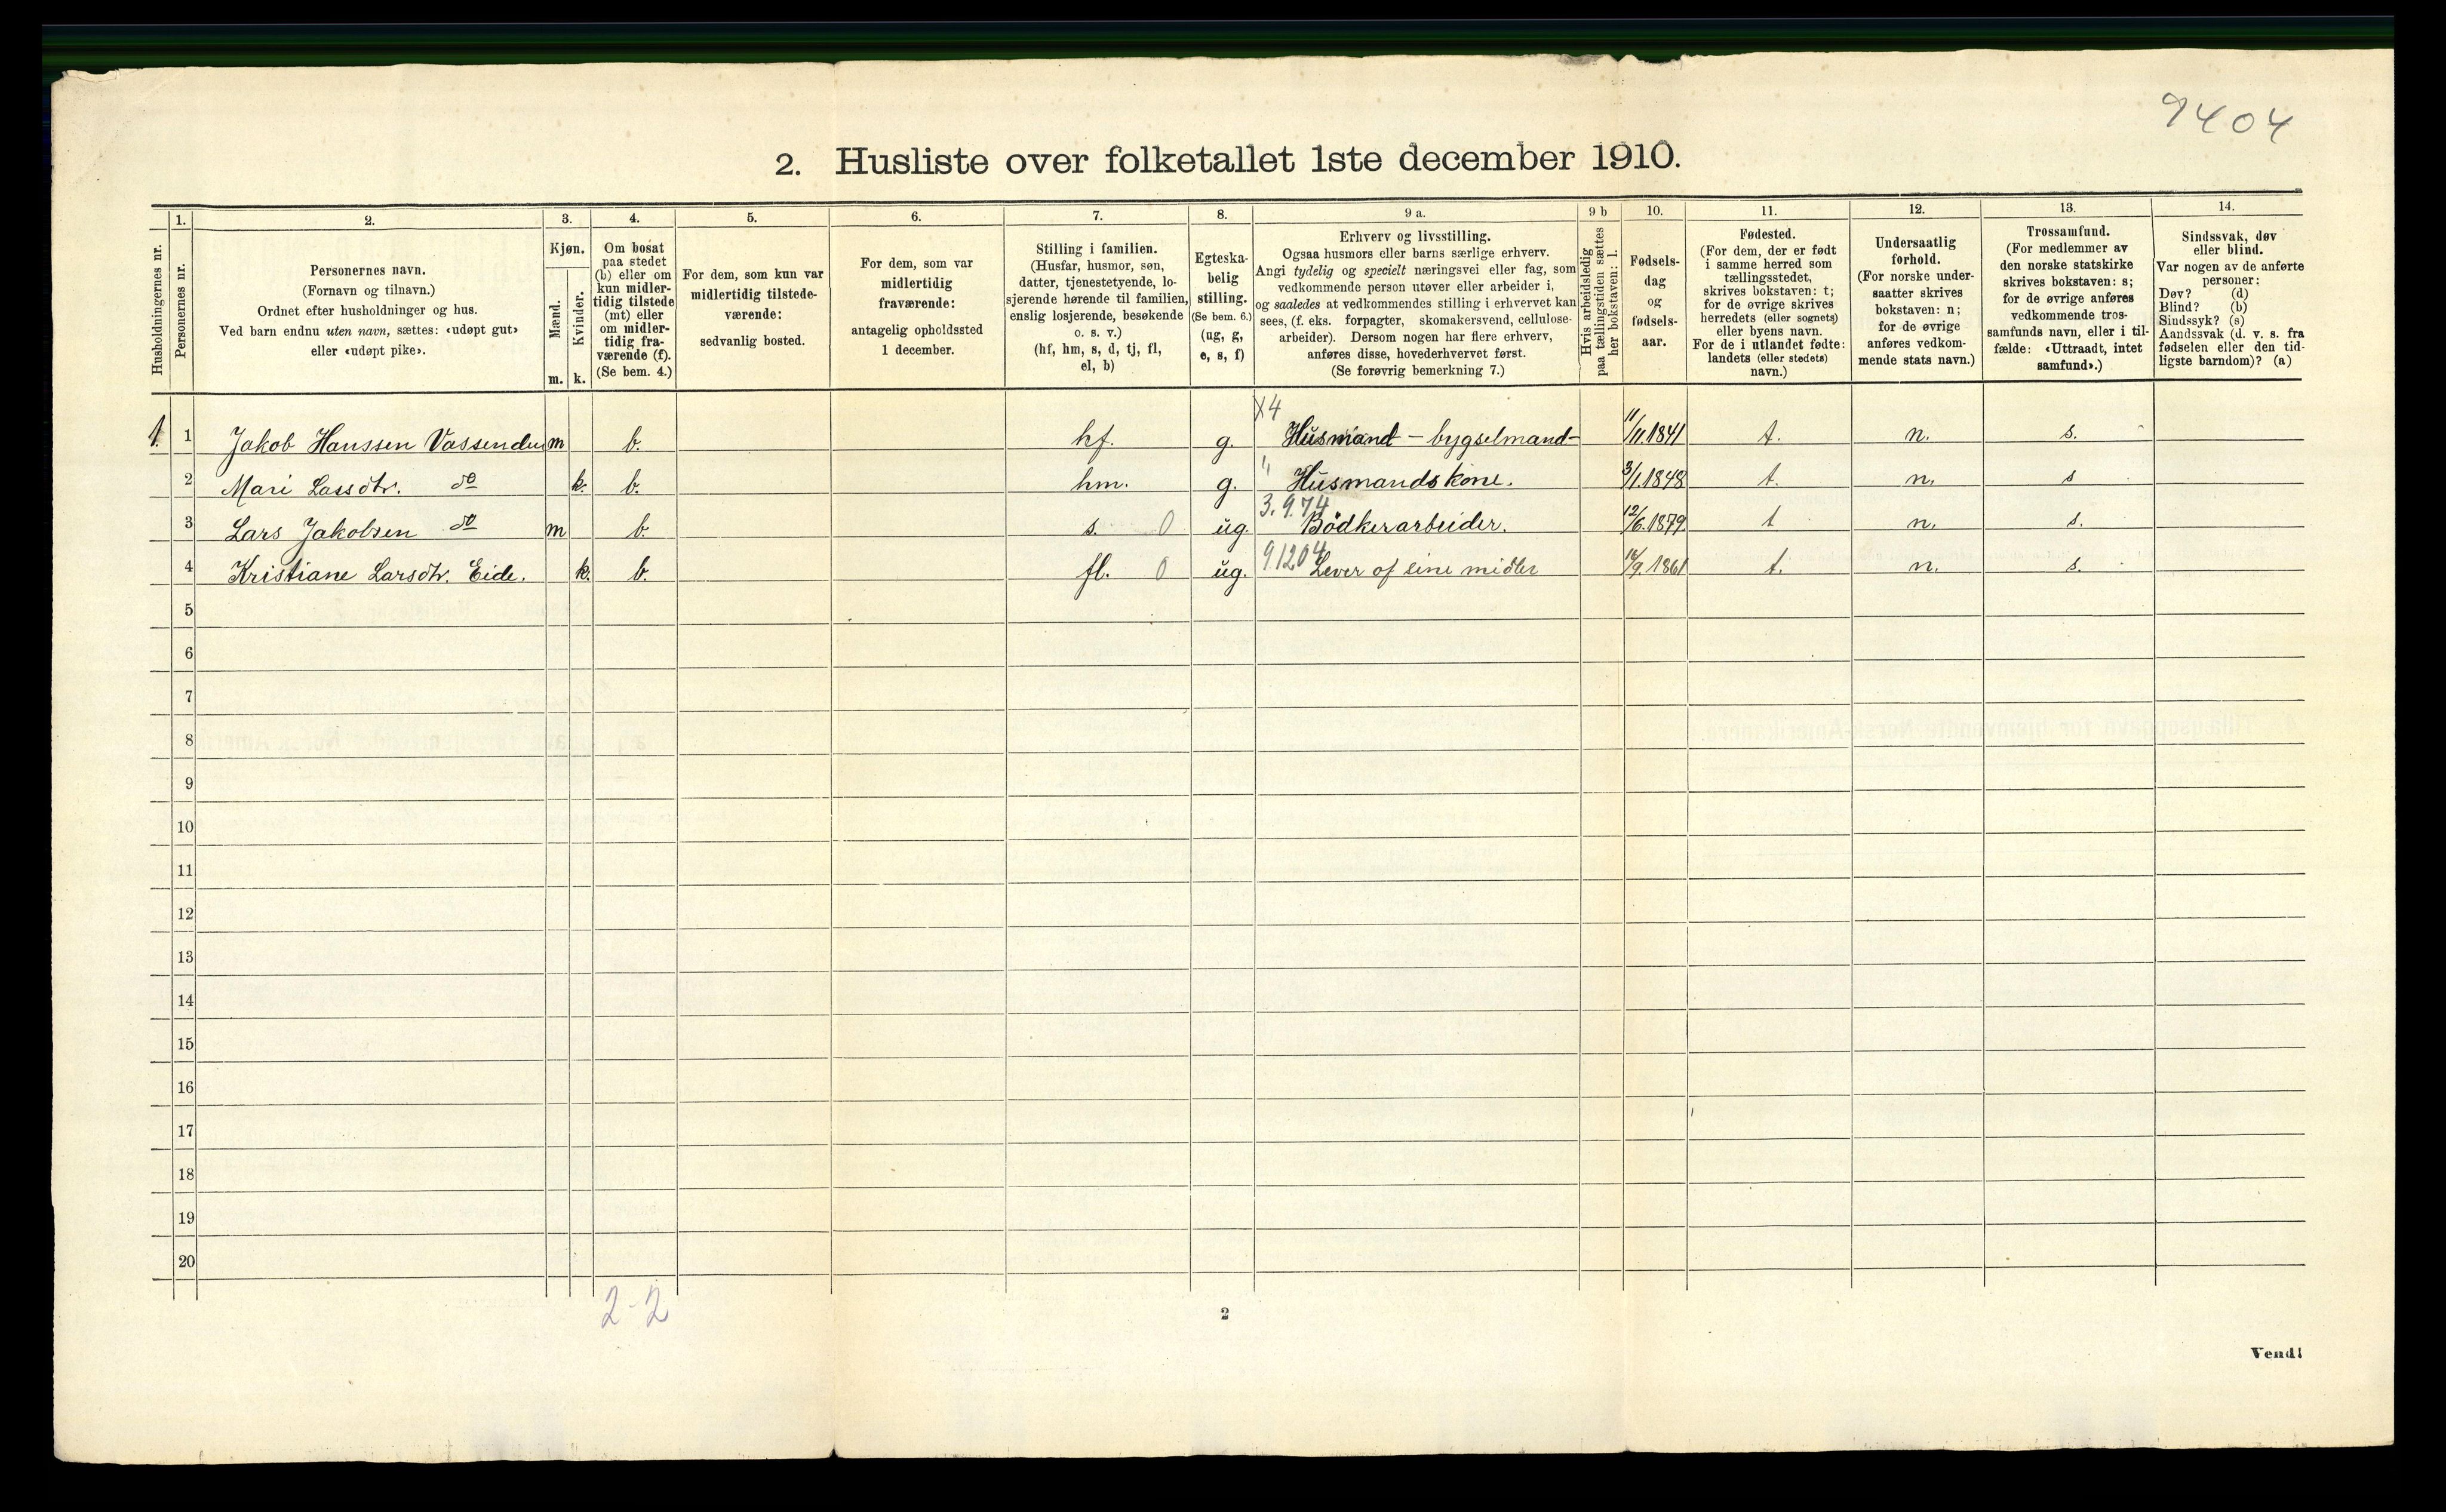 9404
2. Husliste over folketallet 1ste december 1910.
Husholdningernes nr.
1.
Personernes nr.
2.
Personernes navn.
(Fornavn og tilnavn.)
Ordnet efter husholdninger og hus.
Ved barn endnu uten navn, sættes: «udøpt gut»
eller «udøpt pike».
3.
Kjøn.
Mænd.
Kvinder.
m. k.
4.
Om bosat
paa stedet
(b) eller om
kun midler-
tidig tilstede
(mt) eller
om midler-
tidig fra-
værende (f).
(Se bem. 4.)
5.
For dem, som kun var
midlertidig tilstede-
værende:
sedvanlig bosted.
6.
For dem, som var
midlertidig
fraværende:
antagelig opholdssted
1 december.
7.
Stilling i familien.
(Husfar, husmor, søn,
datter, tjenestetyende, lo-
sjerende hørende til familien,
enslig losjerende, besøkende
o. s. v.)
(hf, hm, s, d, tj, fl,
el, b)
8.
Egteska-
belig
stilling.
(Se bem. 6.)
(ug, g,
e, s, f)
9 a.
Erhverv og livsstilling.
Ogsaa husmors eller barns særlige erhverv.
Angi tydelig og specielt næringsvei eller fag, som
vedkommende person utøver eller arbeider i,
og saaledes at vedkommendes stilling i erhvervet kan
sees, (f. eks. forpagter, skomakersvend, cellulose-
arbeider). Dersom nogen har flere erhverv,
anføres disse, hovederhvervet først.
(Se forøvrig bemerkning 7.)
9 b
Hvis arbeidsledig
paa tællingstiden sættes
her bokstaven: l.
10.
Fødsels-
dag
og
fødsels-
aar.
11.
Fødested.
(For dem, der er født
i samme herred som
tællingsstedet,
skrives bokstaven: t;
for de øvrige skrives
herredets (eller sognets)
eller byens navn.
For de i utlandet fødte:
landets (eller stedets)
navn.)
12.
Undersaatlig
forhold.
(For norske under-
saatter skrives
bokstaven: n;
for de øvrige
anføres vedkom-
mende stats navn.)
13.
Trossamfund.
(For medlemmer av
den norske statskirke
skrives bokstaven: s;
for de øvrige anføres
vedkommende tros-
samfunds navn, eller i til-
fælde: «Uttraadt, intet
samfund».)
14.
Sindssvak, døv
eller blind.
Var nogen av de anførte
personer:
Døv? (d)
Blind? (b)
Sindssyk? (s)
Aandssvak (d. v. s. fra
fødselen eller den tid-
ligste barndom)? (a)
X4
1. 1 Jakob Hanssen Vassenden m b. hf. g. Husmand - bygselmand- 11/11.1841 t. n. s.
2 Mari Lassdtr. do k. b. hm. g. " Husmandskone. 3/1.1848 t. n. s
3.9.74
3 Lars Jakobsen do m b. s. 0 ug. Bödkerarbeider. 12/6.1879 t n. s.
4 Kristiane Larsdtr. Eide. k. b. fl. 0 ug. 91204 Lever af sine midler /9.1861 t. n. s.
5
6
7
8
9
10
11
12
13
14
15
16
17
18
19
20
2-2
2
Vend!